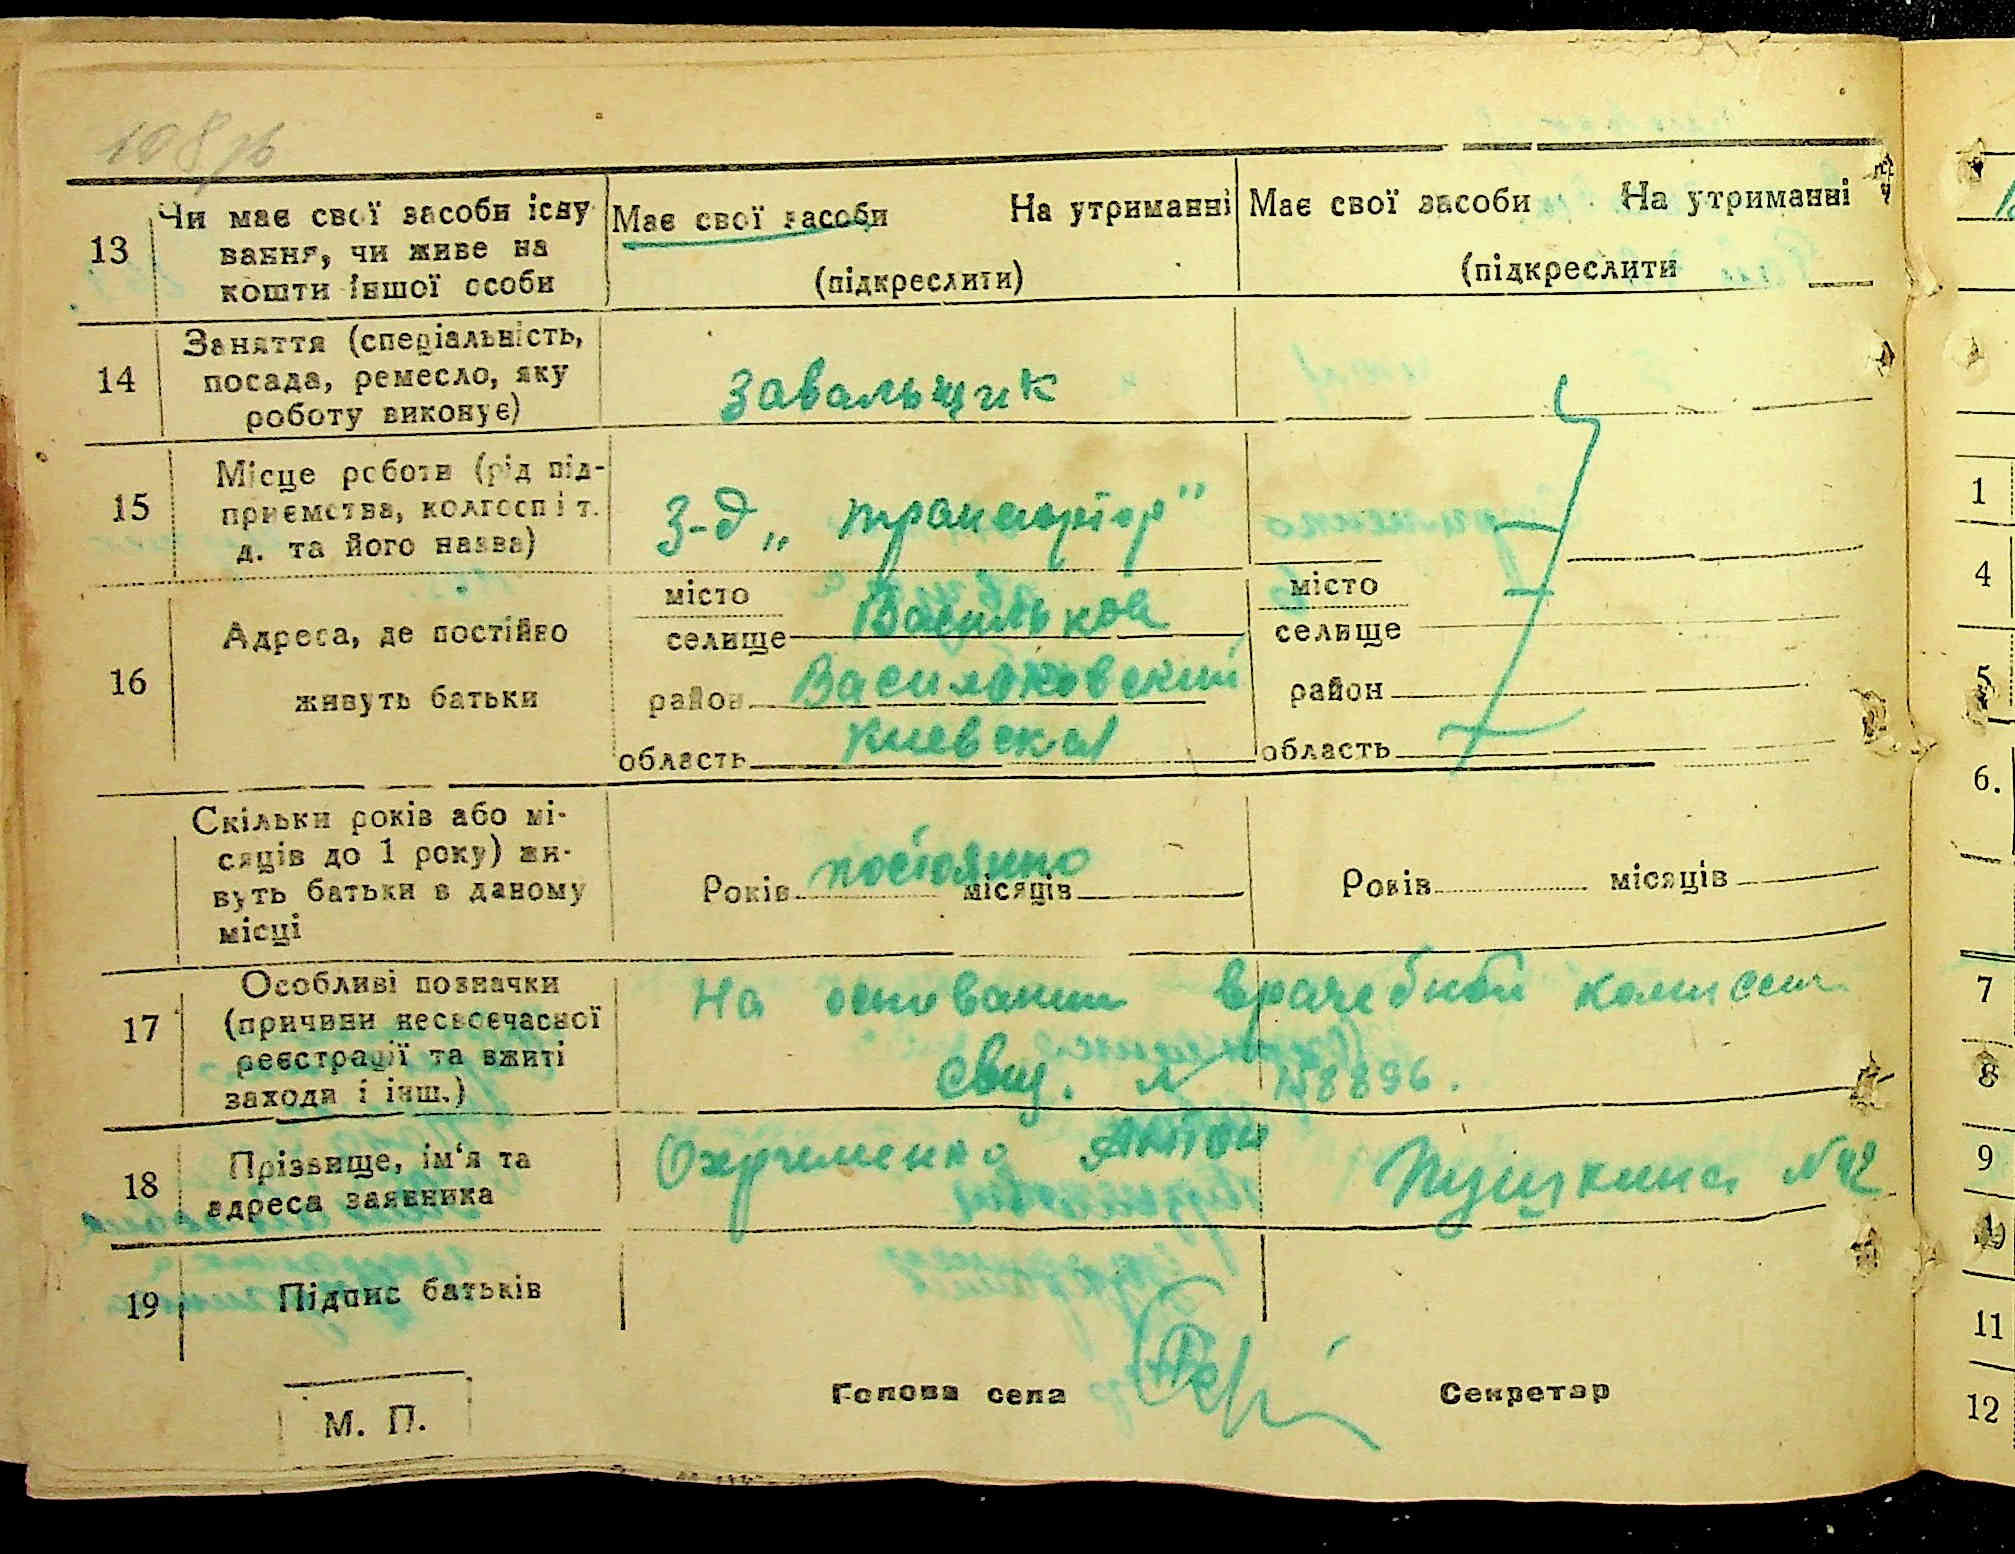 13
Чи має свої засоби існу
вання, чи живе на
кошти іншої особи
Має свої засоби На утриманні
(підкреслити)
Має свої засоби На утриманні
(підкреслити
14
Заняття (спеціальність,
посада, ремесло, яку
роботу виконує)
Завальщик
15
Місце роботи (рід під-
приємства, колгосп і т.
д. та його назва)
З-д „
16
Адреса, де постійно
живуть батьки
місто
селище Васильков
район Васильковский
область Киевская
місто
селище
район
область
Скільки років або мі-
сяців до 1 року) жи-
вуть батьки в даному
місці
Років постоянно місяців
Років місяців
17
Особливі позначки
(причини несвоєчасної
реєстрації та вжиті
заходи і інш.)
На основании врачебной комиссии
свид. N
18
Прізвище, ім‘я та
адреса заявника
Охрименко Антон Пушкина N 42
19
Підпис батьків
М. П.
Голова села
Секретар
1
4
5
6.
7
8
9
10
11
12